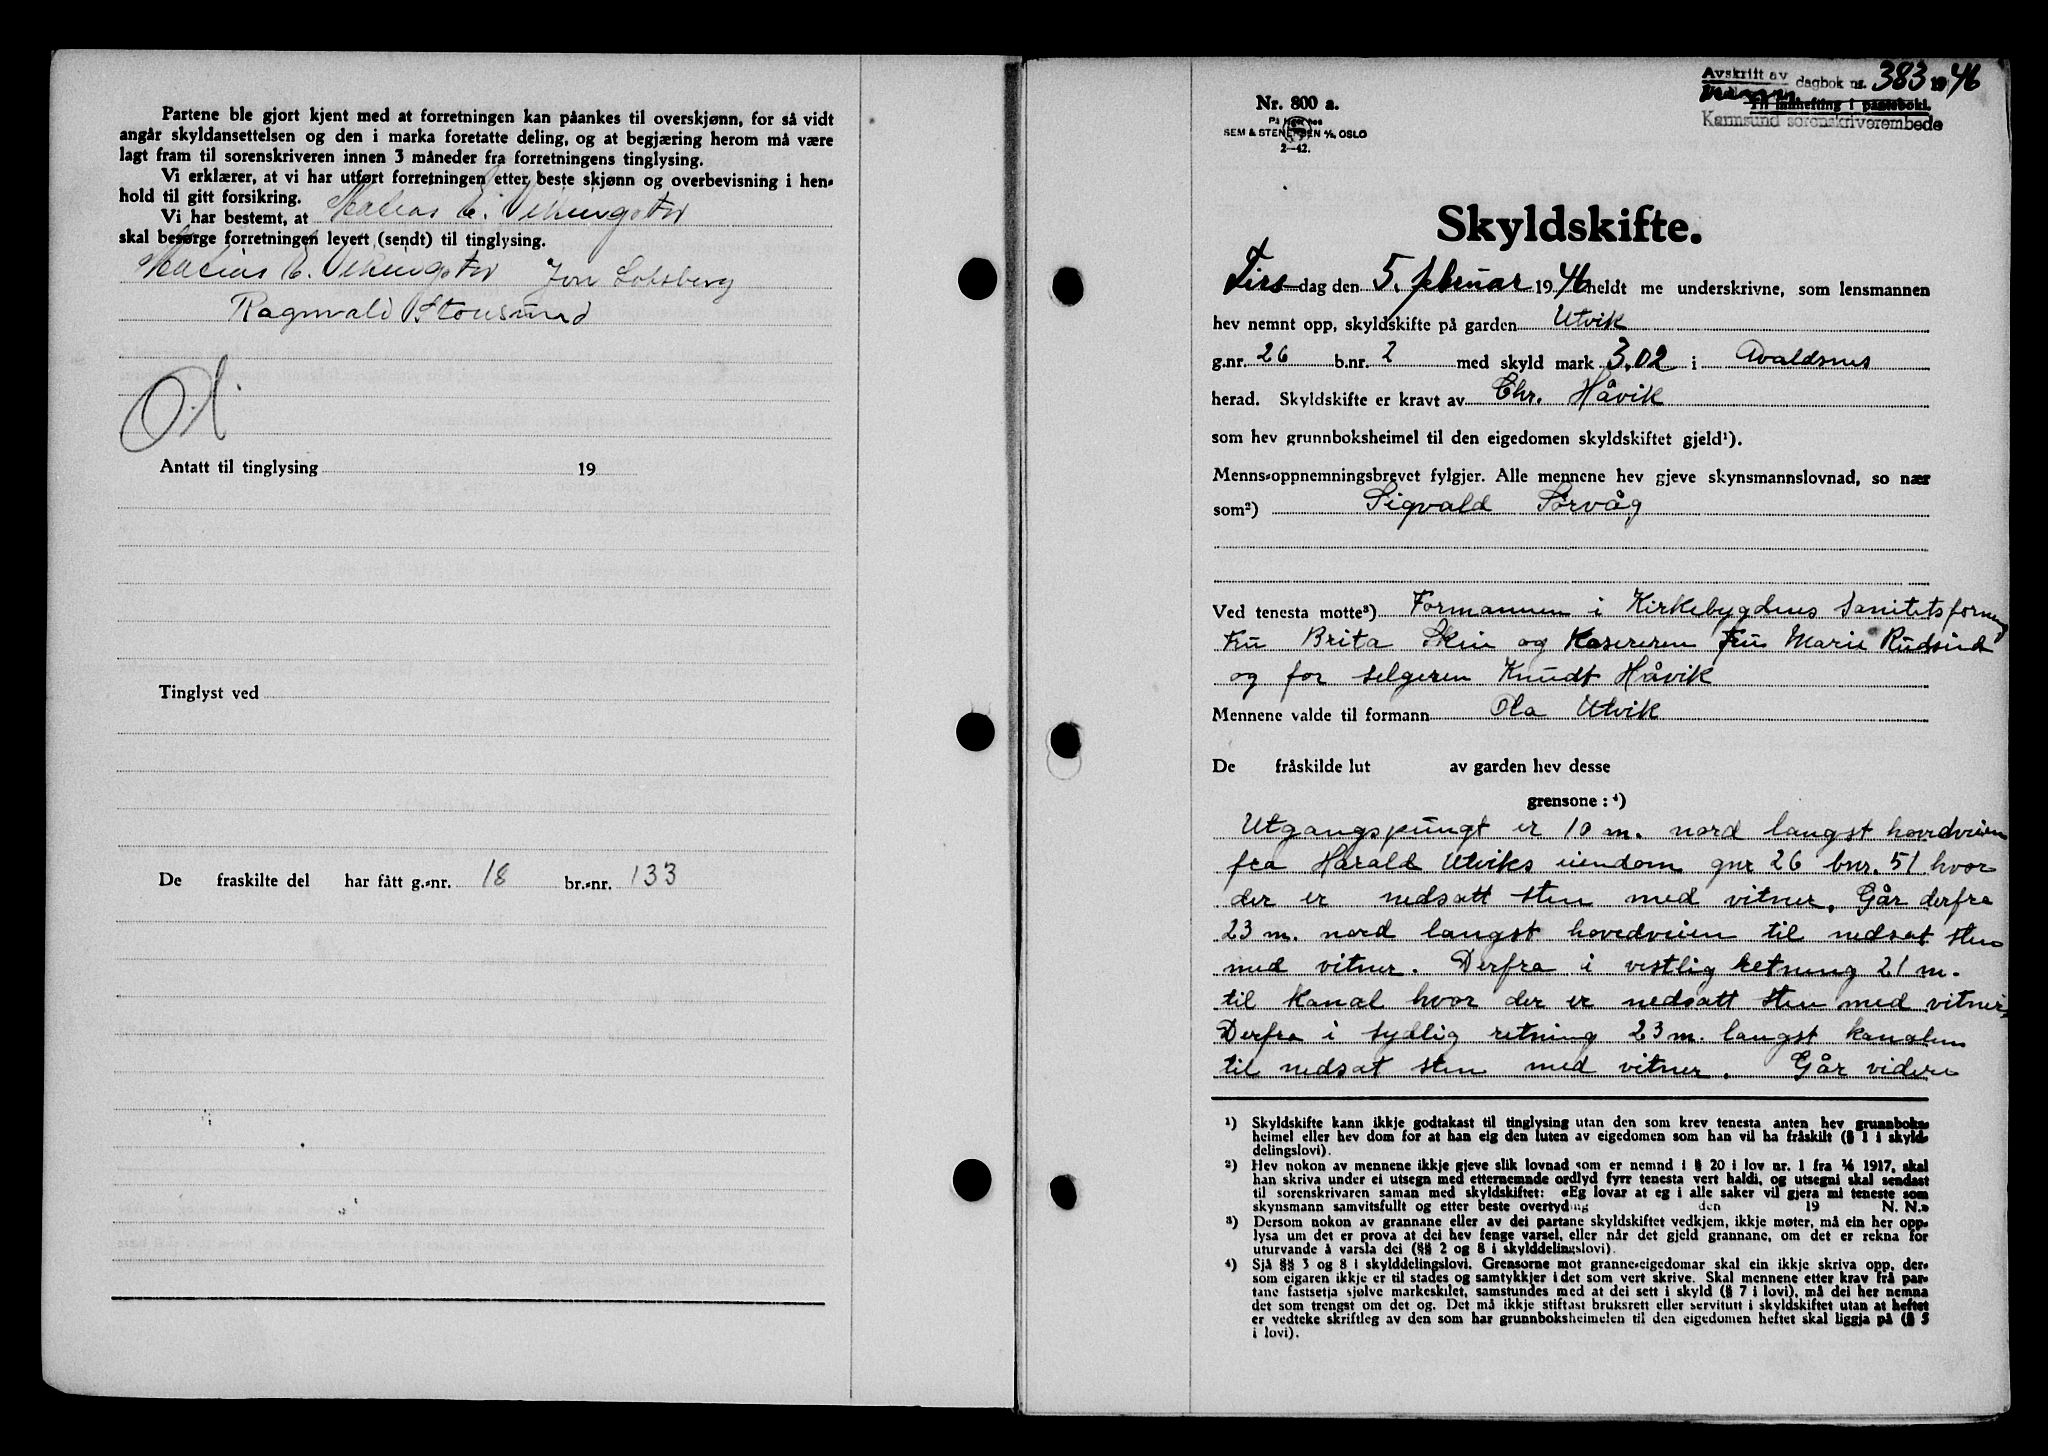 Partene ble gjort kjent med at forretningen kan påankes til overskjønn, for så vidt
angår skyldansettelsen og den i marka foretatte deling, og at begjæring herom må være
lagt fram til sorenskriveren innen 3 måneder fra forretningens tinglysing.
Vi erklærer, at vi har utført forretningen etter beste skjønn og overbevisning i hen-
hold til gitt forsikring.
Vi har bestemt, at Matias E. Vikingstad
skal besørge forretningen levert (sendt) til tinglysing.
Matias E. Vikingstad Jon
Ragnvald Stousund
Antatt til tinglysing 19
Tinglyst ved
De fraskilte del har fått g.-nr. 18 br.-nr. 133
Avskrift av dagbok nr. 383 1946
Til innhefting i panteboki.
Karmsund sorenskriverembede
Nr. 800 a.
På lager hos
SEM & STENERSEN A/S, OSLO
2-42.
Skyldskifte.
Tirsdag den 5. februar 1946 heldt me underskrivne, som lensmannen
hev nemnt opp, skyldskifte på garden Utvik
g.nr. 26 b.nr. 2 med skyld mark 3.02 i Avaldsnes
herad. Skyldskifte er kravt av Chr. Håvik
som hev grunnboksheimel til den eigedomen skyldskiftet gjeld¹).
Menns-oppnemningsbrevet fylgjer. Alle mennene hev gjeve skynsmannslovnad, so nær
som²) Sigvald Sørvåg
Ved tenesta møtte³) Formannen i Kirkebygdens Sanitetsforning
Fru Brita Skeie og Kasereren Fru Marie Rudsind
og for selgeren Knudt Håvik
Mennene valde til formann Ola Utvik
De fråskilde lut av garden hev desse
grensone: ⁴)
Utgangspungt er 10 m. nord langst hovedveien
fra Harald Utviks eiendom gnr 26 bnr. 51 hvor
der er nedsatt sten med vitner. Går derfra
23 m. nord langst hovedveien til nedsat sten
med vitner. Derfra i vestlig retning 21 m.
til kanal hvor der er nedsatt sten med vitner.
Derfra i sydlig retning 23 m. langst kanalen
til nedsat sten med vitner. Går videre
¹) Skyldskifte kann ikkje godtakast til tinglysing utan den som krev tenesta anten hev grunnboks-
heimel eller hev dom for at han eig den luten av eigedomen som han vil ha fråskilt (§ 1 i skyld-
delingslovi).
²) Hev nokon av mennene ikkje gjeve slik lovnad som er nemnd i § 20 i lov nr. 1 fra 1/6 1917, skal
han skriva under ei utsegn med etternemnde ordlyd fyrr tenesta vert haldi, og utsegni skal sendast
til sorenskrivaren saman med skyldskiftet: «Eg lovar at eg i alle saker vil gjera mi teneste som
skynsmann samvitsfullt og etter beste overtyding den 19 N. N.»
³) Dersom nokon av grannane eller av dei partane skyldskiftet vedkjem, ikkje møter, må ein her opp-
lysa um det er prova at dei hev fenge varsel, eller når det gjeld grannane, om det er rekna for
uturvande å varsla dei (§§ 2 og 8 i skylddelingslovi).
⁴) Sjå §§ 3 og 8 i skylddelingslovi. Grensorne mot granne-eigedomar skal ein ikkje skriva opp, der-
som eigaren ikkje er til stades og samtykkjer i det som vert skrive. Skal mennene etter krav frå par-
tane fastsetja sjølve markeskilet, samstundes med at dei sett i skyld (§ 7 i lovi), må dei her nemna
det som trengst om det og. Det må ikkje stiftast bruksrett eller servitutt i skyldskiftet utan at heftet
er vedteke skriftleg av den som har grunnboksheimelen til den eigedomen heftet skal liggja på (§ 5
i lovi).